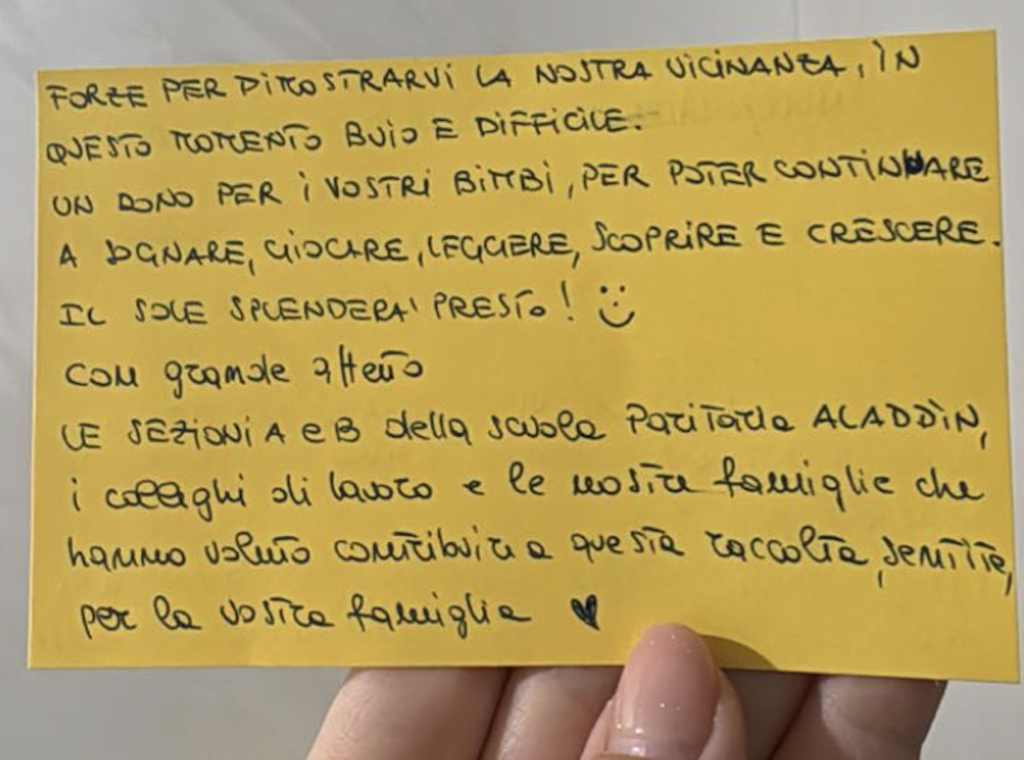 FORZE PER DIMOSTRARVI LA NOSTRA VICINANZA, IN
QUESTO MOMENTO BUIO E DIFFICILE.
UN DONO PER I VOSTRI BIMBI, PER POTER CONTINUARE
A SOGNARE, GIOCARE, LEGGERE, SCOPRIRE E CRESCERE.
IL SOLE SPLENDERA' PRESTO! :)
Con grande affetto
LE SEZIONI A e B della scuola Paritaria ALADDIN,
i colleghi di lavoro e le nostre famiglie che
hanno voluto contribuire a questa raccolta, sentita,
per la vostra famiglia ♥